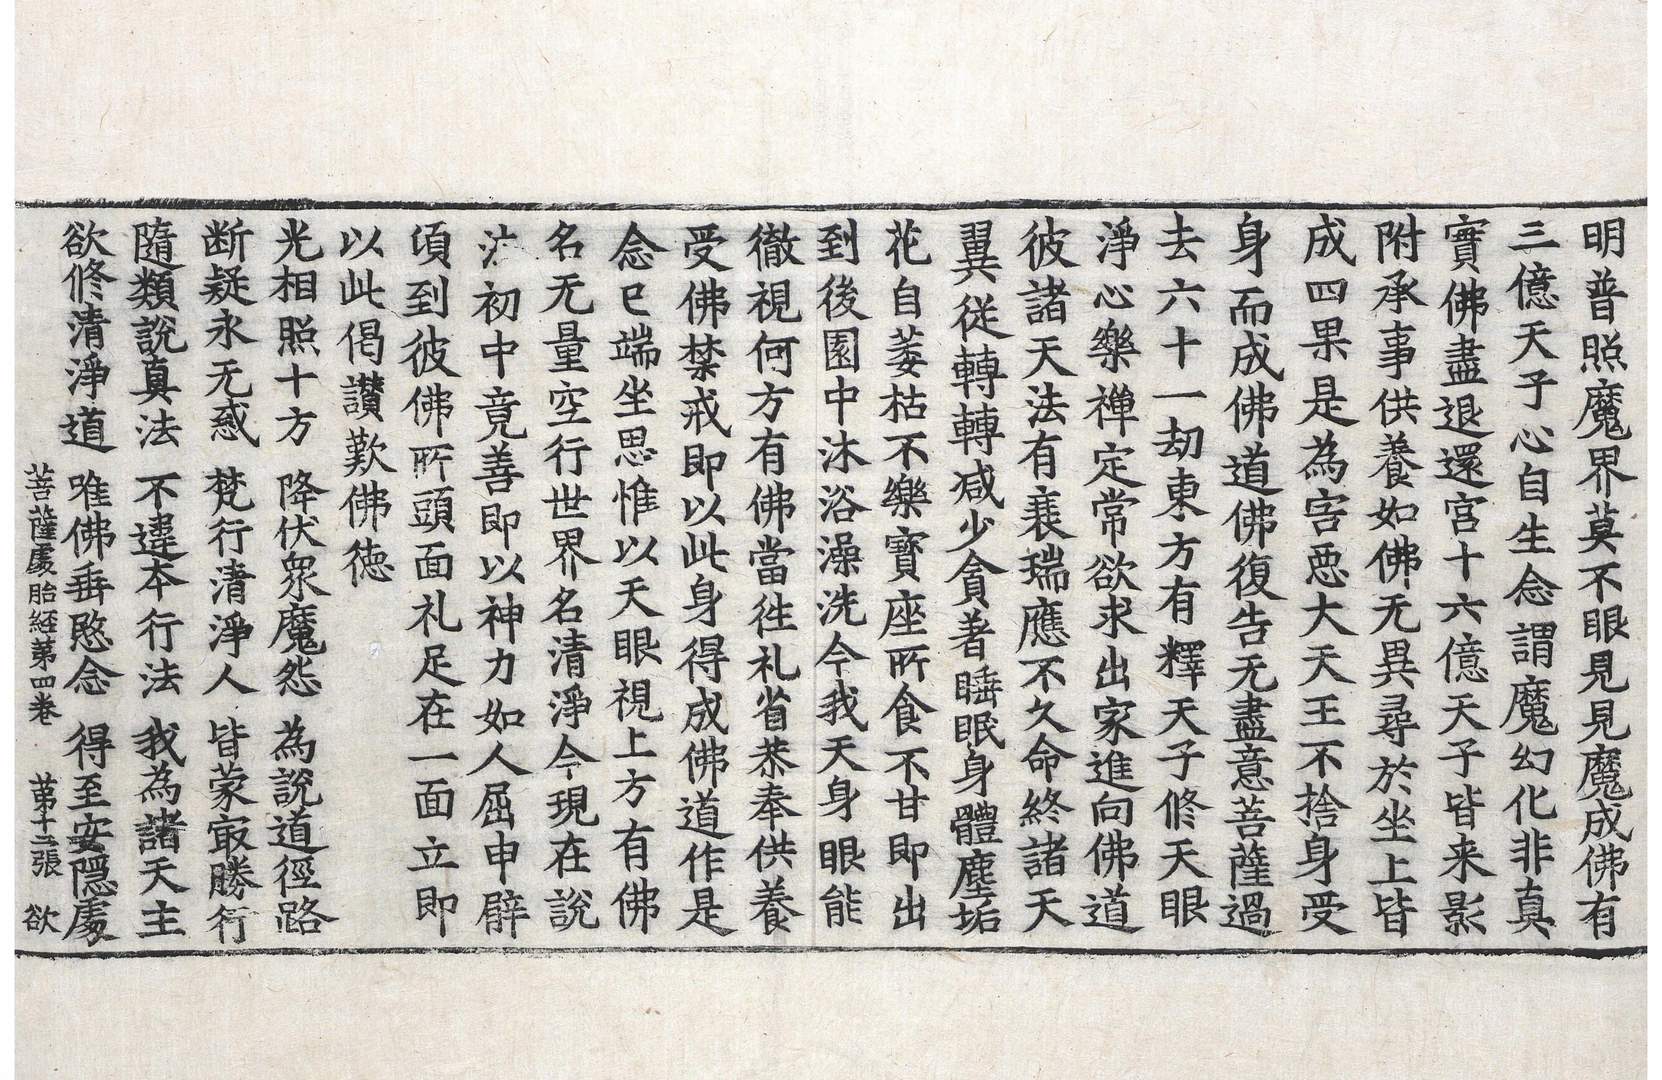 明普照魔界莫不眼見見魔成佛有
三億天子心自生念謂魔幻化非真
實佛盡退還宮十六億天子皆来影
附承事供養如佛无異尋於坐上皆
成四果是為害悪大天王不捨身受
身而成佛道佛復告无盡意菩薩過
去六十一劫東方有釋天子修天眼
淨心樂禅定常欲求出家進向佛道
彼諸天法有衰瑞應不久命終諸天
翼從轉轉減少貪著睡眠身體塵垢
花自萎枯不樂寶座所食不甘即出
到後園中沐浴澡洗今我天身眼能
徹視何方有佛當往礼省恭奉供養
受佛禁戒即以此身得成佛道作是
念已端坐思惟以天眼視上方有佛
名无量空行世界名清淨今現在說
法初中竟善即以神力如人屈申臂
頃到彼佛所頭面礼足在一面立即
以此偈讃歎佛徳
光相照十方 降伏衆魔怨 為説道徑路
断疑永无惑 梵行清淨人 皆蒙㝡勝行
隨類説真法 不違本行法 我為諸天主
欲修清淨道 唯佛垂愍念 得至安隠處
菩薩處胎経第四巻 第十二張 欲